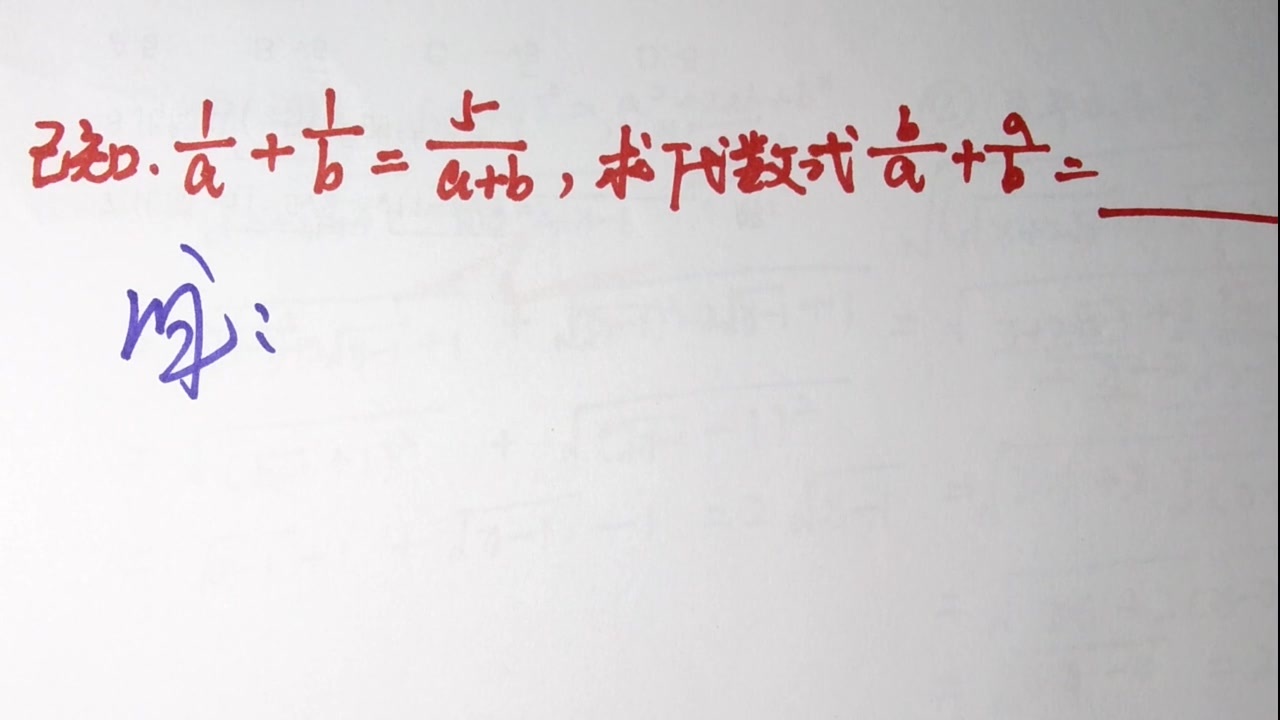 已知.1/a+1/b=5/(a+b),求代数式b/a+a/b=____
解: